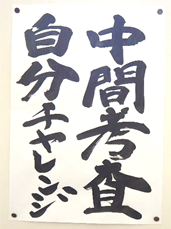 中間考査
自分チャレンジ